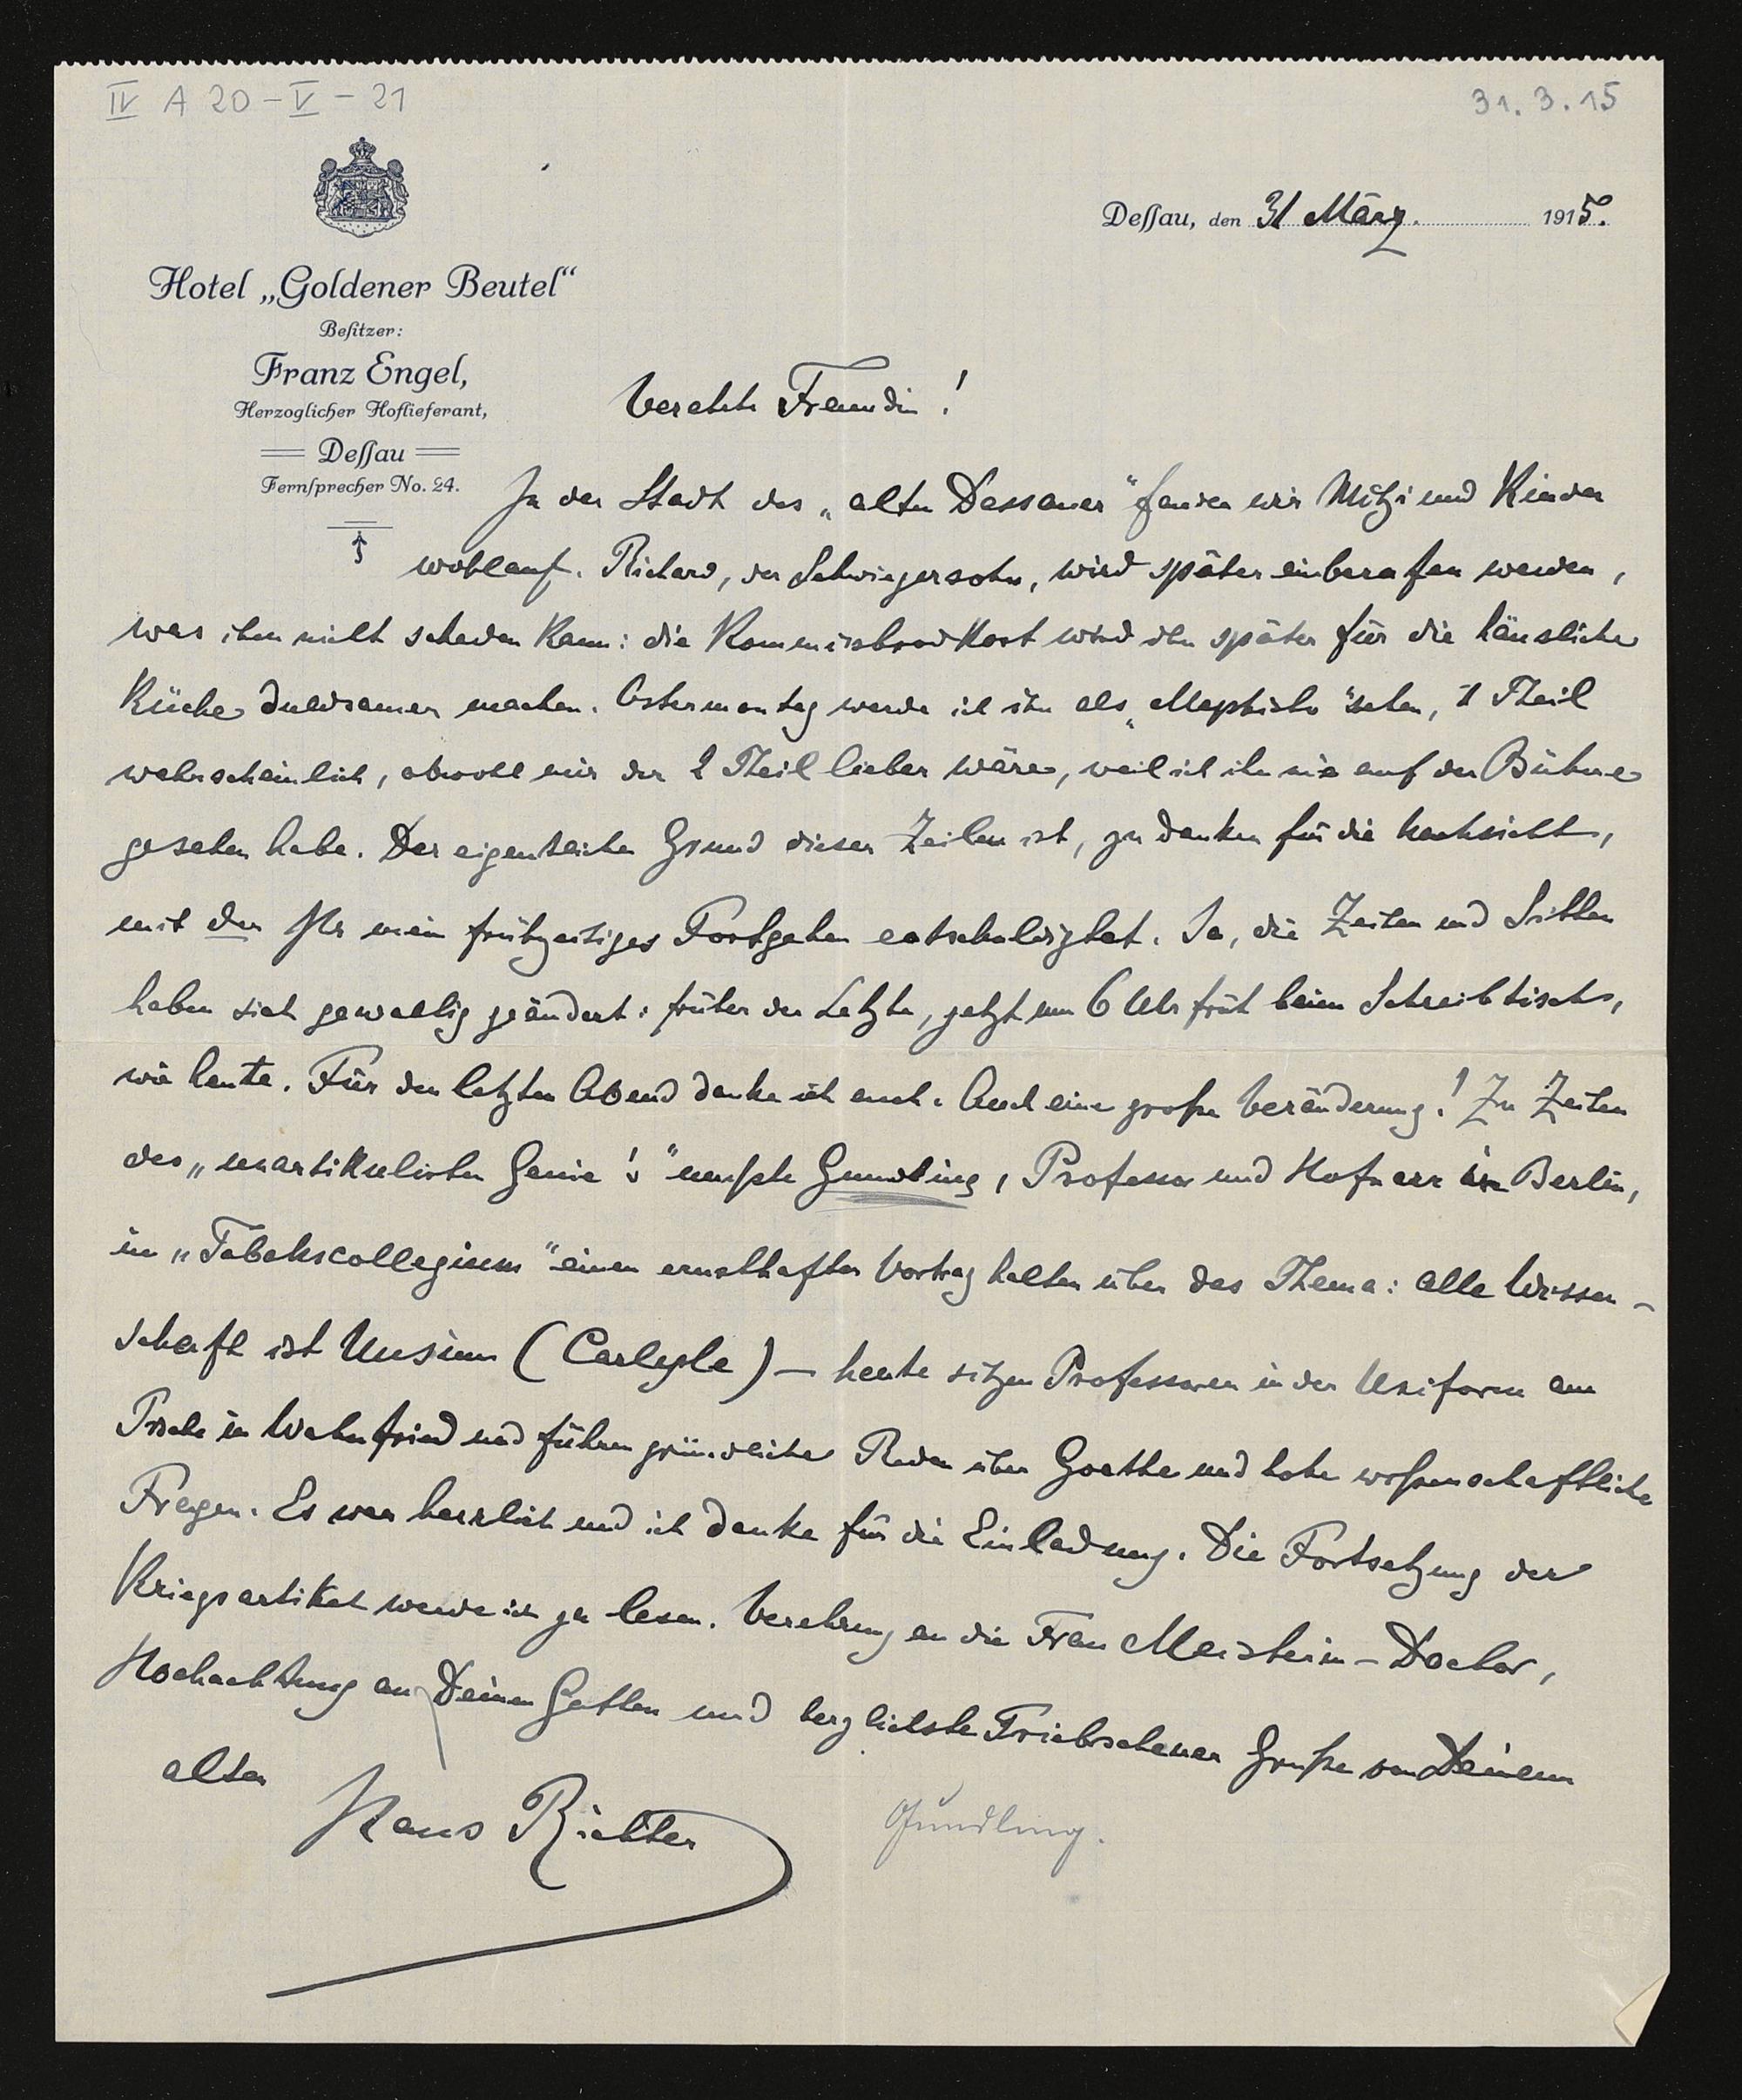 IV A 20 - V - 21
31. 3. 15
Deſſau, den 31 März. 1915.
Hotel „Goldener Beutel“
Beſitzer:
Franz Engel,
Herzoglicher Hoflieferant,
Deſſau
Fernſprecher No. 24.
Verehrte Freundin!
In der Stadt des „alten Dessauer“ fanden wir Mitzi und Kinder
wohlauf. Richard, der Schwiegersohn, wird später einberufen werden,
was ihm nicht schaden kann: die Kommissbrodkost wird ihn später für die häusliche
Küche duldsamer machen. Ostermontag werde ich ihn als „Mephisto“ sehen, 1 Theil
wahrscheinlich, obwohl mir der 2 Theil lieber wäre, weil ich ihn nie auf der Bühne
gesehen habe. Der eigentliche Grund dieser Zeilen ist, zu danken für die Nachsicht,
mit der Ihr mein frühzeitiges Fortgehen entschuldigtet. Ja, die Zeiten und Sitten
haben sich gewaltig geändert: früher der Letzte, jetzt um 6 Uhr früh beim Schreibtisch,
wie heute. Für den letzten Abend danke ich euch. Auch eine große Veränderung! Zu Zeiten
des „unartikulirten Genie's“ mußte Gundling, Professor und Hofnarr in Berlin,
im „Tabakscollegium“ einen ernsthaften Vortrag halten über das Thema: alle Wissen-
schaft ist Unsinn (Carlyle) — heute sitzen Professoren in der Uniform am
Tische in Wahnfried und führen gründliche Reden über Goethe und hohe wißenschaftliche
Fragen. Es war herrlich und ich danke für die Einladung. Die Fortsetzung der
Kriegsartikel werde ich zu lesen. Verehrung an die Frau Meisterin-Doctor,
Hochachtung an Deinen Gatten und herzlichste Triebschener Grüße von Deinem
alten
Hans Richter
Gundling.